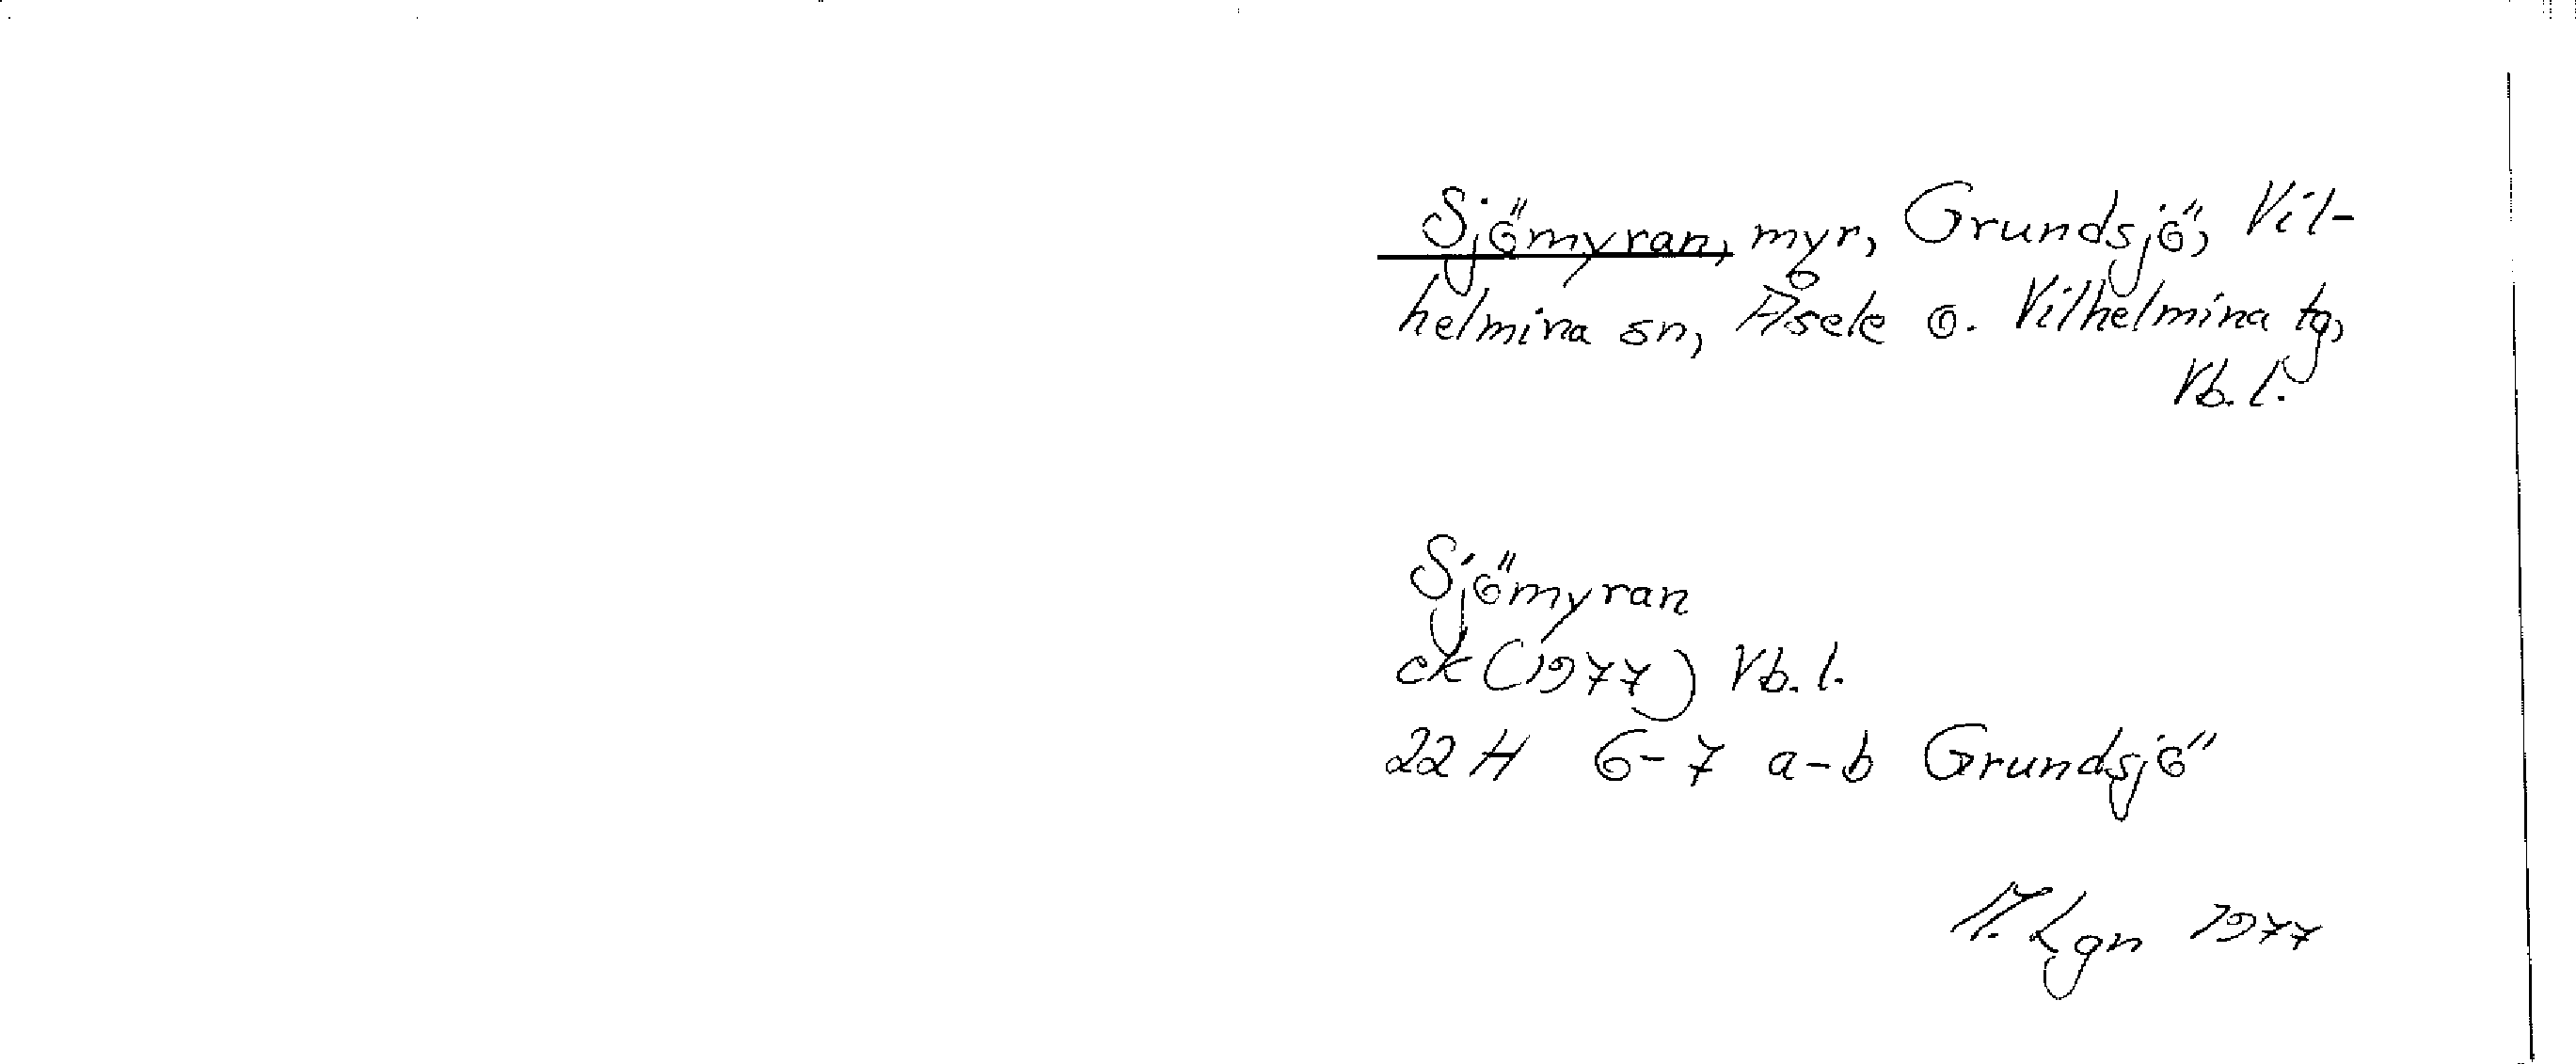 Sjömyran, myr, Grundsjö, Vil-
helmina sn, Åsele o. Vilhelmina tg,
Vb. l.
Sjömyran
ek (1977) Vb. l.
22 H 6-7 a-b Grundsjö
M. Lgn 1977